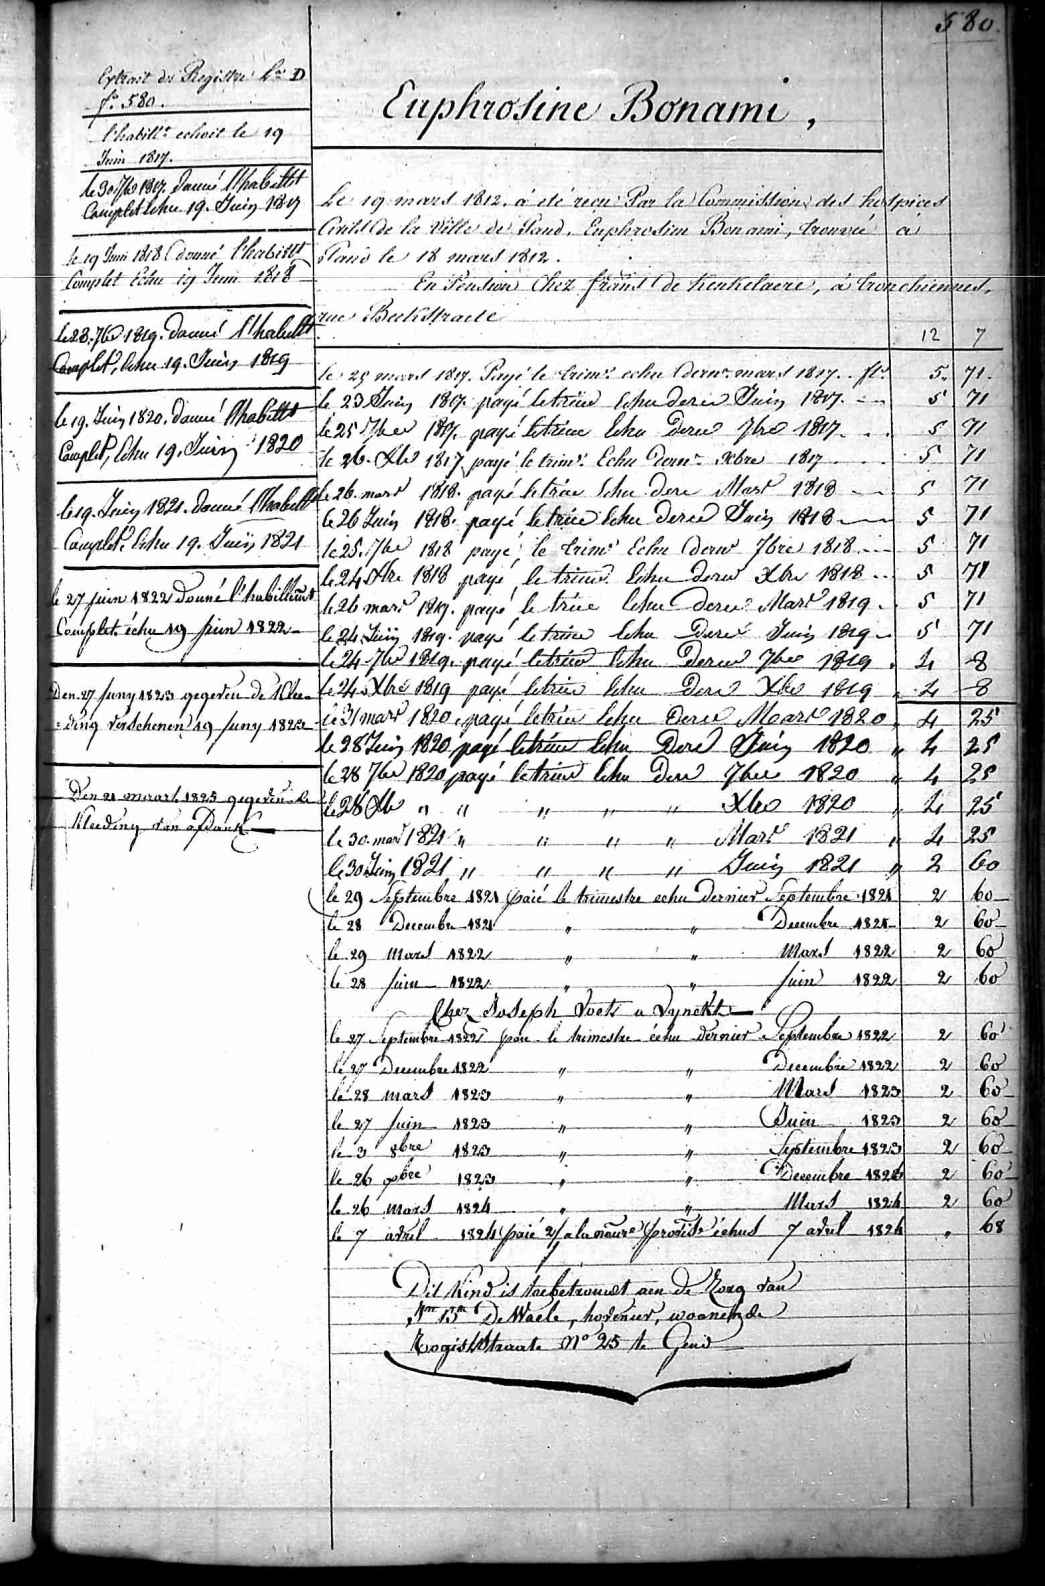 580.
Extrait du Registre L.ª D
f.º 580.
l'habill.t echoit le 19
Juin 1817.
le 30 7bre 1817. donné l'habillt
Complet echu 19. Juin 1817
le 19 Juin 1818 donné l'habillt
Complet Echu 19 Juin 1818
le 28. 7bre 1819. donné l'habillt
Complet, echu 19. Juin 1819
le 19. Juin 1820. donné l'habillt
Complet, echu 19. Juin 1820
le 19. Juin 1821. donné l'habillt
Complet, echu 19. Juin 1821
le 27 juin 1822 donné l'habillemt
Complet échu 19 juin 1822
Den 27 Juny 1823 gegeven de Klee-
-ding verschenen 19 Juny 1823
Den 21 maart 1825 gegeven de
Kleeding van
Euphrosine Bonami,
Le 19 mars 1812. a été reçu Par la Commission des hospices
Civils de la Ville de Gand, Euphrosine Bonami, trouvée à
Gand le 18 mars 1812.
En Pension Chez frans de Kenkelaere, à tronchiennes,
rue Beekstraete
12 7
le 25 mars 1817. Payé le trim.e echu dern.r mars 1817. fl.s 5. 71.
le 23 Juin 1817. payé le trim echu dern Juin 1817. 5 71
le 25 7bre 1817. payé le trim echu dern 7bre 1817. 5 71
le 26. Xbre 1817 payé le trim.e Echu dern.r Xbre 1817 5 71
le 26. mars 1818. payé le trim echu dern Mars 1818 5 71
le 26 Juin 1818. payé le trim echu dern Juin 1818 5 71
le 25. 7bre 1818 payé le trim.e Echu dern.r 7bre 1818 5 71
le 24 Xbre 1818 payé le trim echu dern Xbre 1818 5 71
le 26 mars 1819. payé le trim echu dern Mars 1819. 5 71
le 24 Juin 1819. payé le trim echu Dern Juin 1819 5 71
le 24 7bre 1819. payé le trim echu Dern 7bre 1819 4 8
le 24 Xbre 1819 payé le trim echu Dern Xbre 1819 4 8
le 31 mars 1820. payé le trim echu Dern Mars 1820 „ 4 25
le 28 Juin 1820 payé le trim echu Dern Juin 1820 „ 4 25
le 28 7bre 1820 payé le trim echu Dern 7bre 1820 „ 4 25
le 28 Xbre „ „ „ „ „ Xbre 1820 „ 4 25
le 30. mars 1821 „ „ „ „ Mars 1821 „ 4 25
le 30 Juin 1821 „ „ „ „ Juin 1821 „ 2 60
le 29 Septembre 1821 paié le trimestre echu dernier Septembre 1821 2 60
le 28 Decembre 1821 „ „ Decembre 1821 2 60
le 29 mars 1822 „ „ Mars 1822 2 60
le 28 juin 1822 „ „ juin 1822 2 60
Chez Joseph Voets a Vynckt
le 27 Septembre 1822 paié le trimestre échu dernier Septembre 1822 2 60
le 27 Decembre 1822 „ „ Decembre 1822 2 60
le 28 mars 1823 „ „ Mars 1823 2 60
le 27 juin 1823 „ „ Juin 1823 2 60
le 3 8bre 1823 „ „ Septembre 1823 2 60
le 26 xbre 1823 „ „ Decembre 1823 2 60
le 26 mars 1824 „ „ Mars 1824 2 60
le 7 avril 1824 paié a la échus 7 avril 1824 „ 68
Dit Kind is toebetrouwt aen de Zorg van
De Waele, hovenier, woonende
Kogistraate N.º 25 te Gend